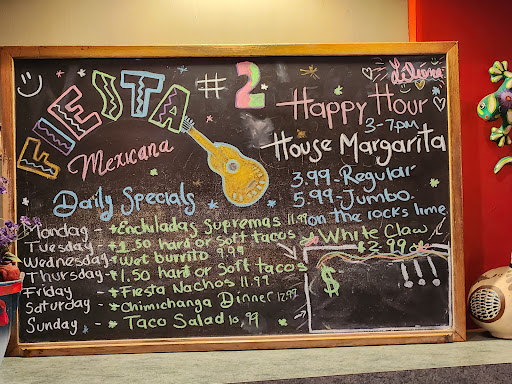 FIESTA
Mexicana
#2
Liliana
Happy Hour
3-7pm
House Margarita
3.99-Regular
5.99-Jumbo
on the rocks lime
White Claw
$3.99
$ !!!
Daily Specials
Monday - *Enchiladas Supremas 11.99
Tuesday - *1.50 hard or soft tacos
Wednesday - *Wet burrito 9.99
Thursday - *1.50 hard or soft tacos
Friday - *Fiesta Nachos 11.99
Saturday - *Chimichanga Dinner 12.99
Sunday - * Taco Salad 10.99